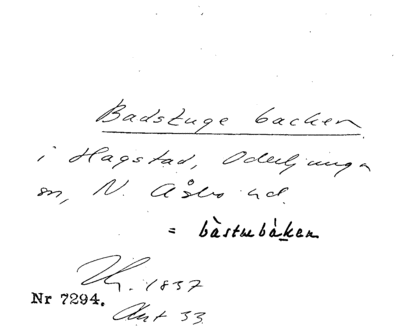 Badstuge backen
i Hagstad, Oderljunga
sn, N. Åsbo hd.
= bàstubàken
Th. 1837
Nr 7294.
Akt 33